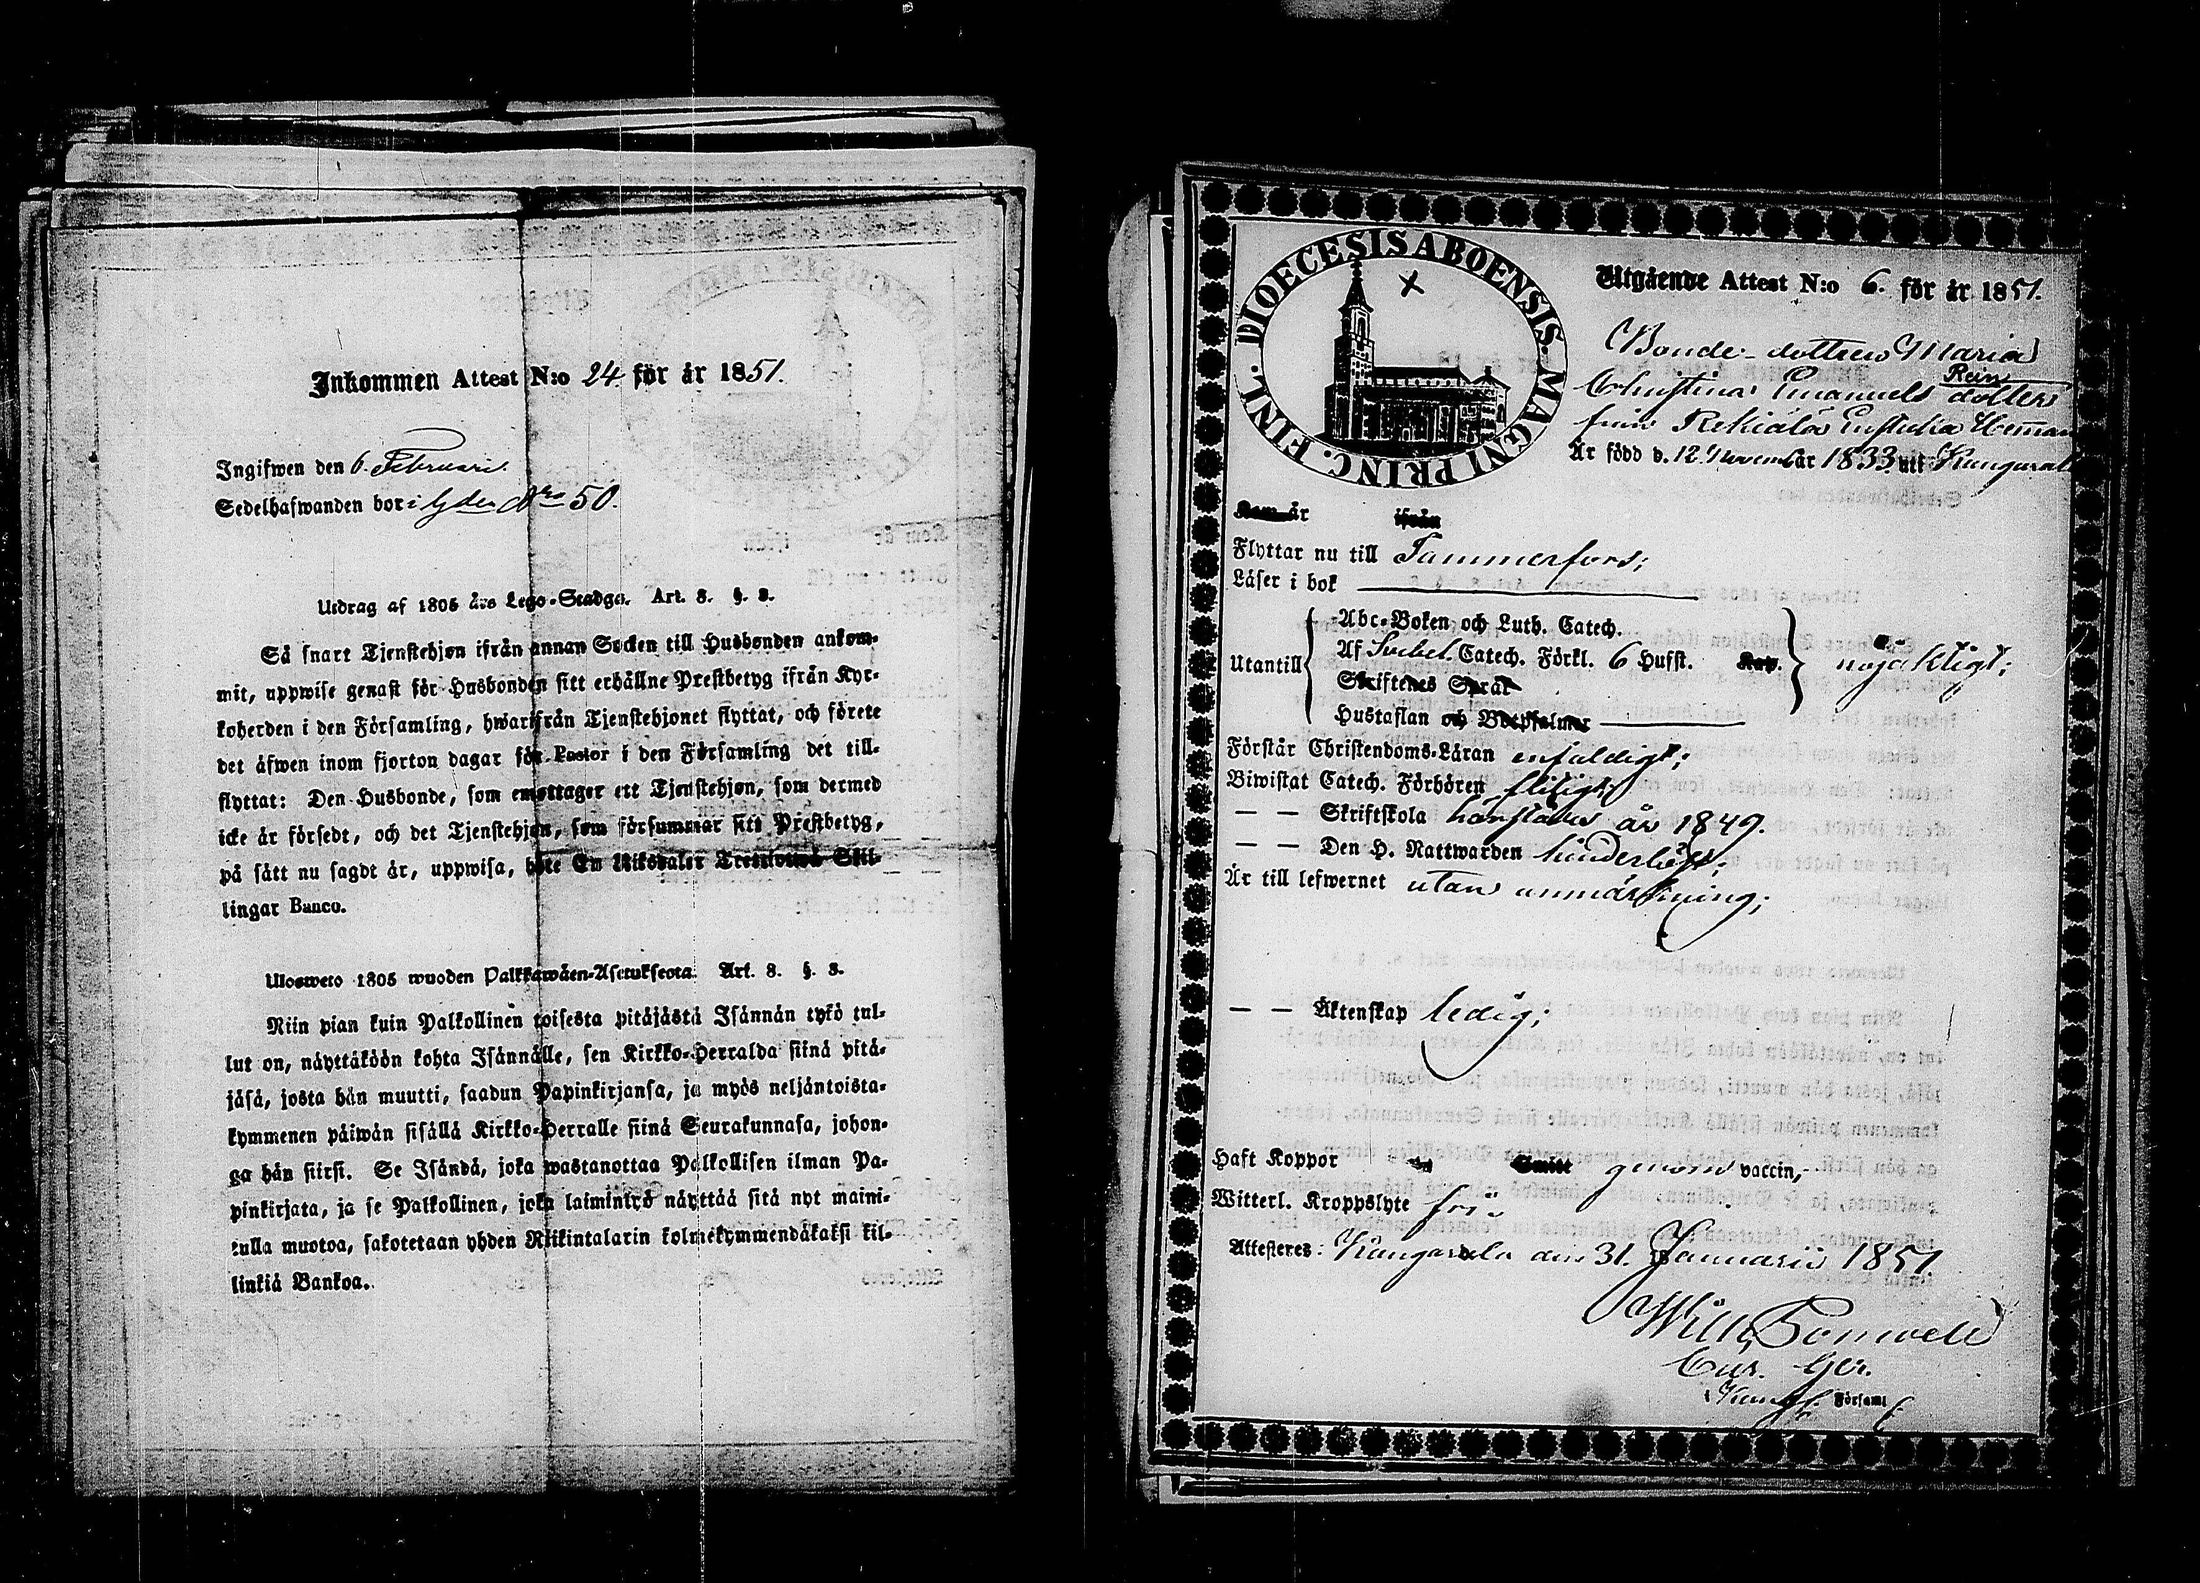 Inkommen Attest N:o 24 för år 1851.
Ingifwen den 6. Februari.
Sedelhafwanden bor i Gden No 50.
Utdrag af 1805 års Lego-Stadga. Art. 8. §. 8.
Så snart Tjenstehjon ifrån annan Socken till Husbonden ankom-
mit, uppwise genast för Husbonden sitt erhållne Prestbetyg ifrån Kyr-
koherden i den Församling, hwarifrån Tjenstehjonet flyttat, och förete
det äfwen inom fjorton dagar för Pastor i den Församling det till-
flyttat: Den Husbonde, som emottager ett Tjenstehjon, som dermed
icke är försedt, och det Tjenstehjon, som försummar sitt Prestbetyg,
på sätt nu sagdt är, uppwisa, böte En Riksdaler Trettiotwå Skil-
lingar Banco.
Ulosweto 1805 wuoden Palkkawäen-Asetuksesta. Art. 8. §. 8.
Niin pian kuin Palkollinen toisesta pitäjästä Isännän tykö tul-
lut on, näyttäköön kohta Isännälle, sen Kirkko-Herralda siinä pitä-
jäsä, josta hän muutti, saadun Papinkirjansa, ja myös neljäntoista-
kymmenen päiwän sisällä Kirkko-Herralle siinä Seurakunnasa, johon-
ga hän siirsi. Se Isändä, joka wastanottaa Palkollisen ilman Pa-
pinkirjata, ja se Palkollinen, joka laiminlyö näyttää sitä nyt maini-
tulla muotoa, sakotetaan yhden Riikintalarin kolmekymmendäkaksi kil-
linkiä Bankoa.
DIOECESIS ABOENSIS. MAGNI PRINC. FINL.
Utgående Attest N:o 6. för år 1851.
Bonde-dottren Maria
Rein
Christina Emanuels dotter
från Rekiälä Eustcka Heman
Är född d. 12 November 1833 uti Kangasala
Kom år ifrån
Flyttar nu till Tammerfors;
Läser i bok
Utantill
Abc-Boken och Luth. Catech.
Af Svebel. Catech. Förkl. 6 Hufst. Kap.
Skriftenes Språk
Hustaflan och Botpsalmer
nöjaktigt;
Förstår Christendoms-Läran enfaldigt;
Biwistat Catech. Förhören flitigt;
— — Skriftskola härstädes år 1849.
— — Den H. Nattwarden hinderlöst;
Är till lefwernet utan anmärkning;
— — Äktenskap ledig;
Haft Koppor genom vaccin,
Witterl. Kroppslyte fri
Attesteres: Kangasala den 31. Januarii 1851.
Wilh.
Cur. Ger.
Församl